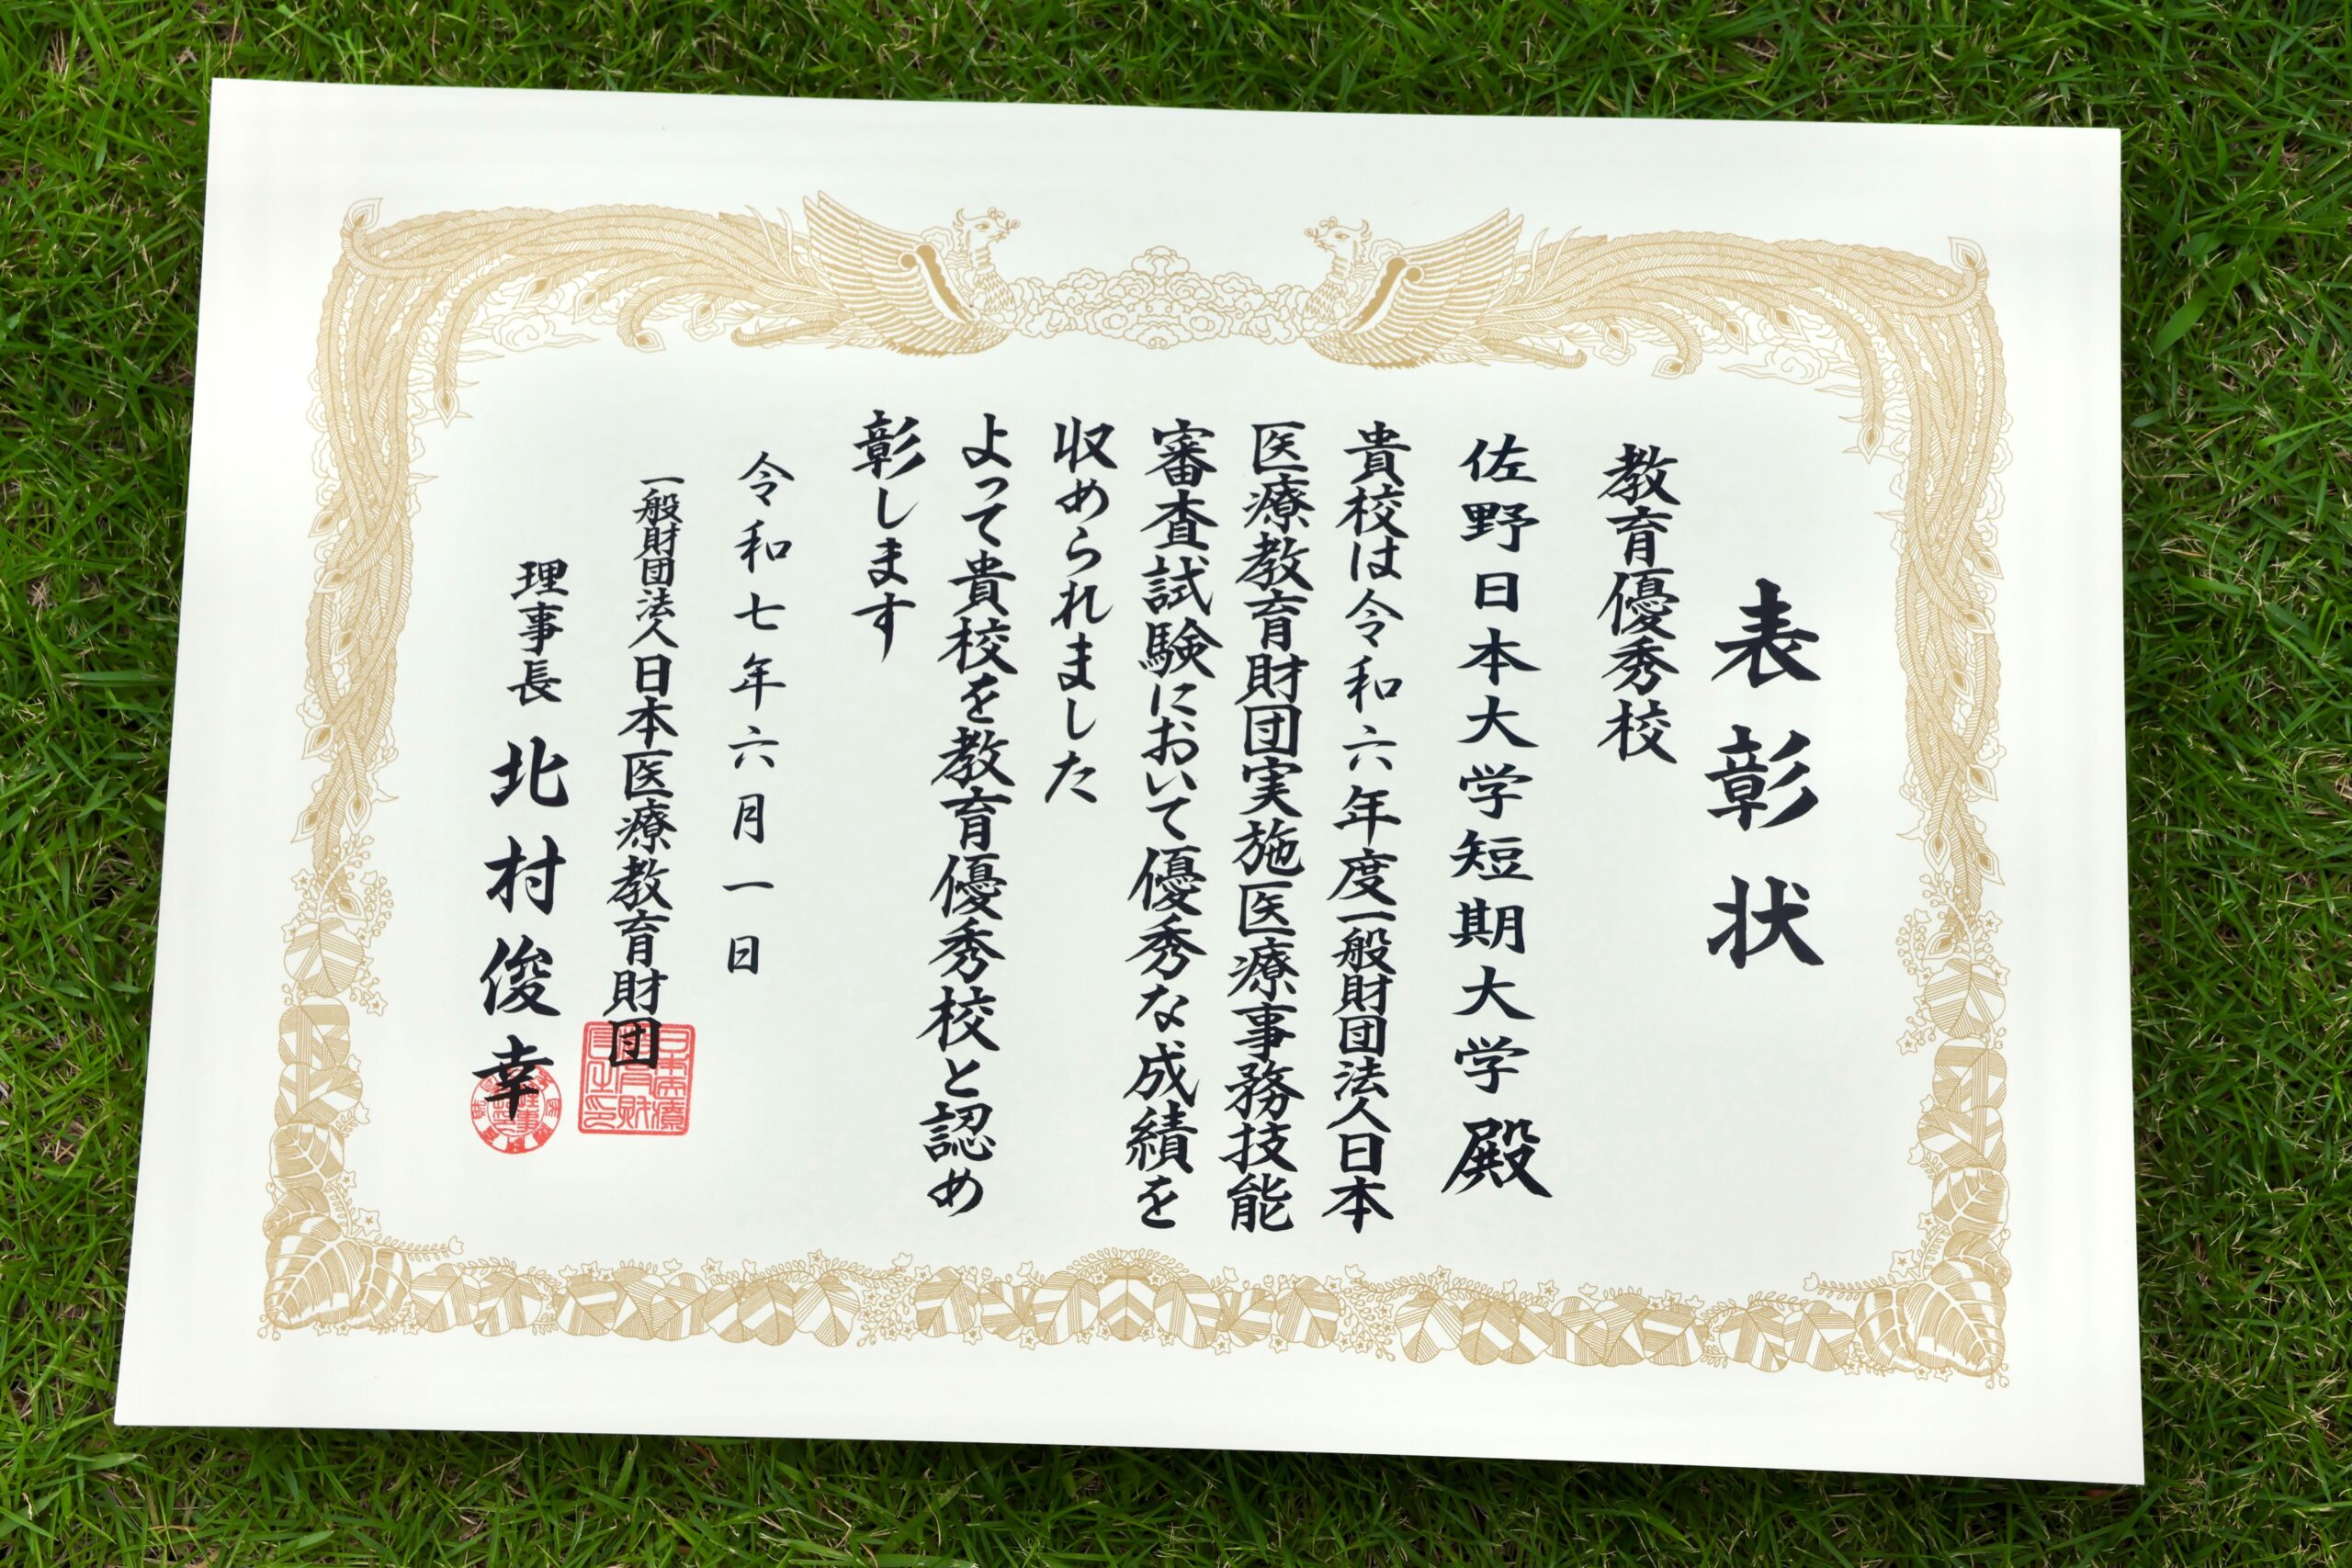 表彰状
教育優秀校
佐野日本大学短期大学殿
貴校は令和六年度一般財団法人日本
医療教育財団実施医療事務技能
審査試験において優秀な成績を
収められました
よって貴校を教育優秀校と認め
彰します
令和七年六月一日
一般財団法人日本医療教育財団
理事長 北村俊幸